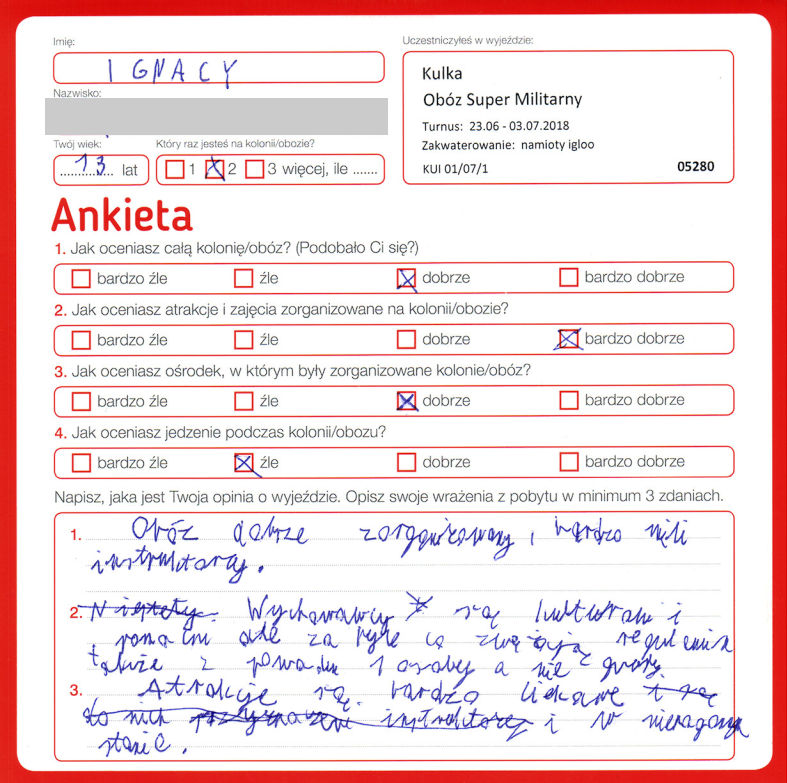 Imię:
IGNACY
Nazwisko:
Twój wiek:
13 lat
Który raz jesteś na kolonii/obozie?
1 2 3 więcej, ile .......
Uczestniczyłeś w wyjeździe:
Kulka
Obóz Super Militarny
Turnus: 23.06 - 03.07.2018
Zakwaterowanie: namioty igloo
KUI 01/07/1 05280
Ankieta
1. Jak oceniasz całą kolonię/obóz? (Podobało Ci się?)
bardzo źle źle dobrze bardzo dobrze
2. Jak oceniasz atrakcje i zajęcia zorganizowane na kolonii/obozie?
bardzo źle źle dobrze bardzo dobrze
3. Jak oceniasz ośrodek, w którym były zorganizowane kolonie/obóz?
bardzo źle źle dobrze bardzo dobrze
4. Jak oceniasz jedzenie podczas kolonii/obozu?
bardzo źle źle dobrze bardzo dobrze
Napisz, jaka jest Twoja opinia o wyjeździe. Opisz swoje wrażenia z pobytu w minimum 3 zdaniach.
1. Obóz dobrze zorganizowany, bardzo mili
instruktorzy.
2. Niestety. Wychowawcy są i
ale za byle co regulamin
także z powodu 1 osoby a nie z grupy.
3. Atrakcje są bardzo ciekawe i są
do nich instruktorzy i w nienagannym
stanie.